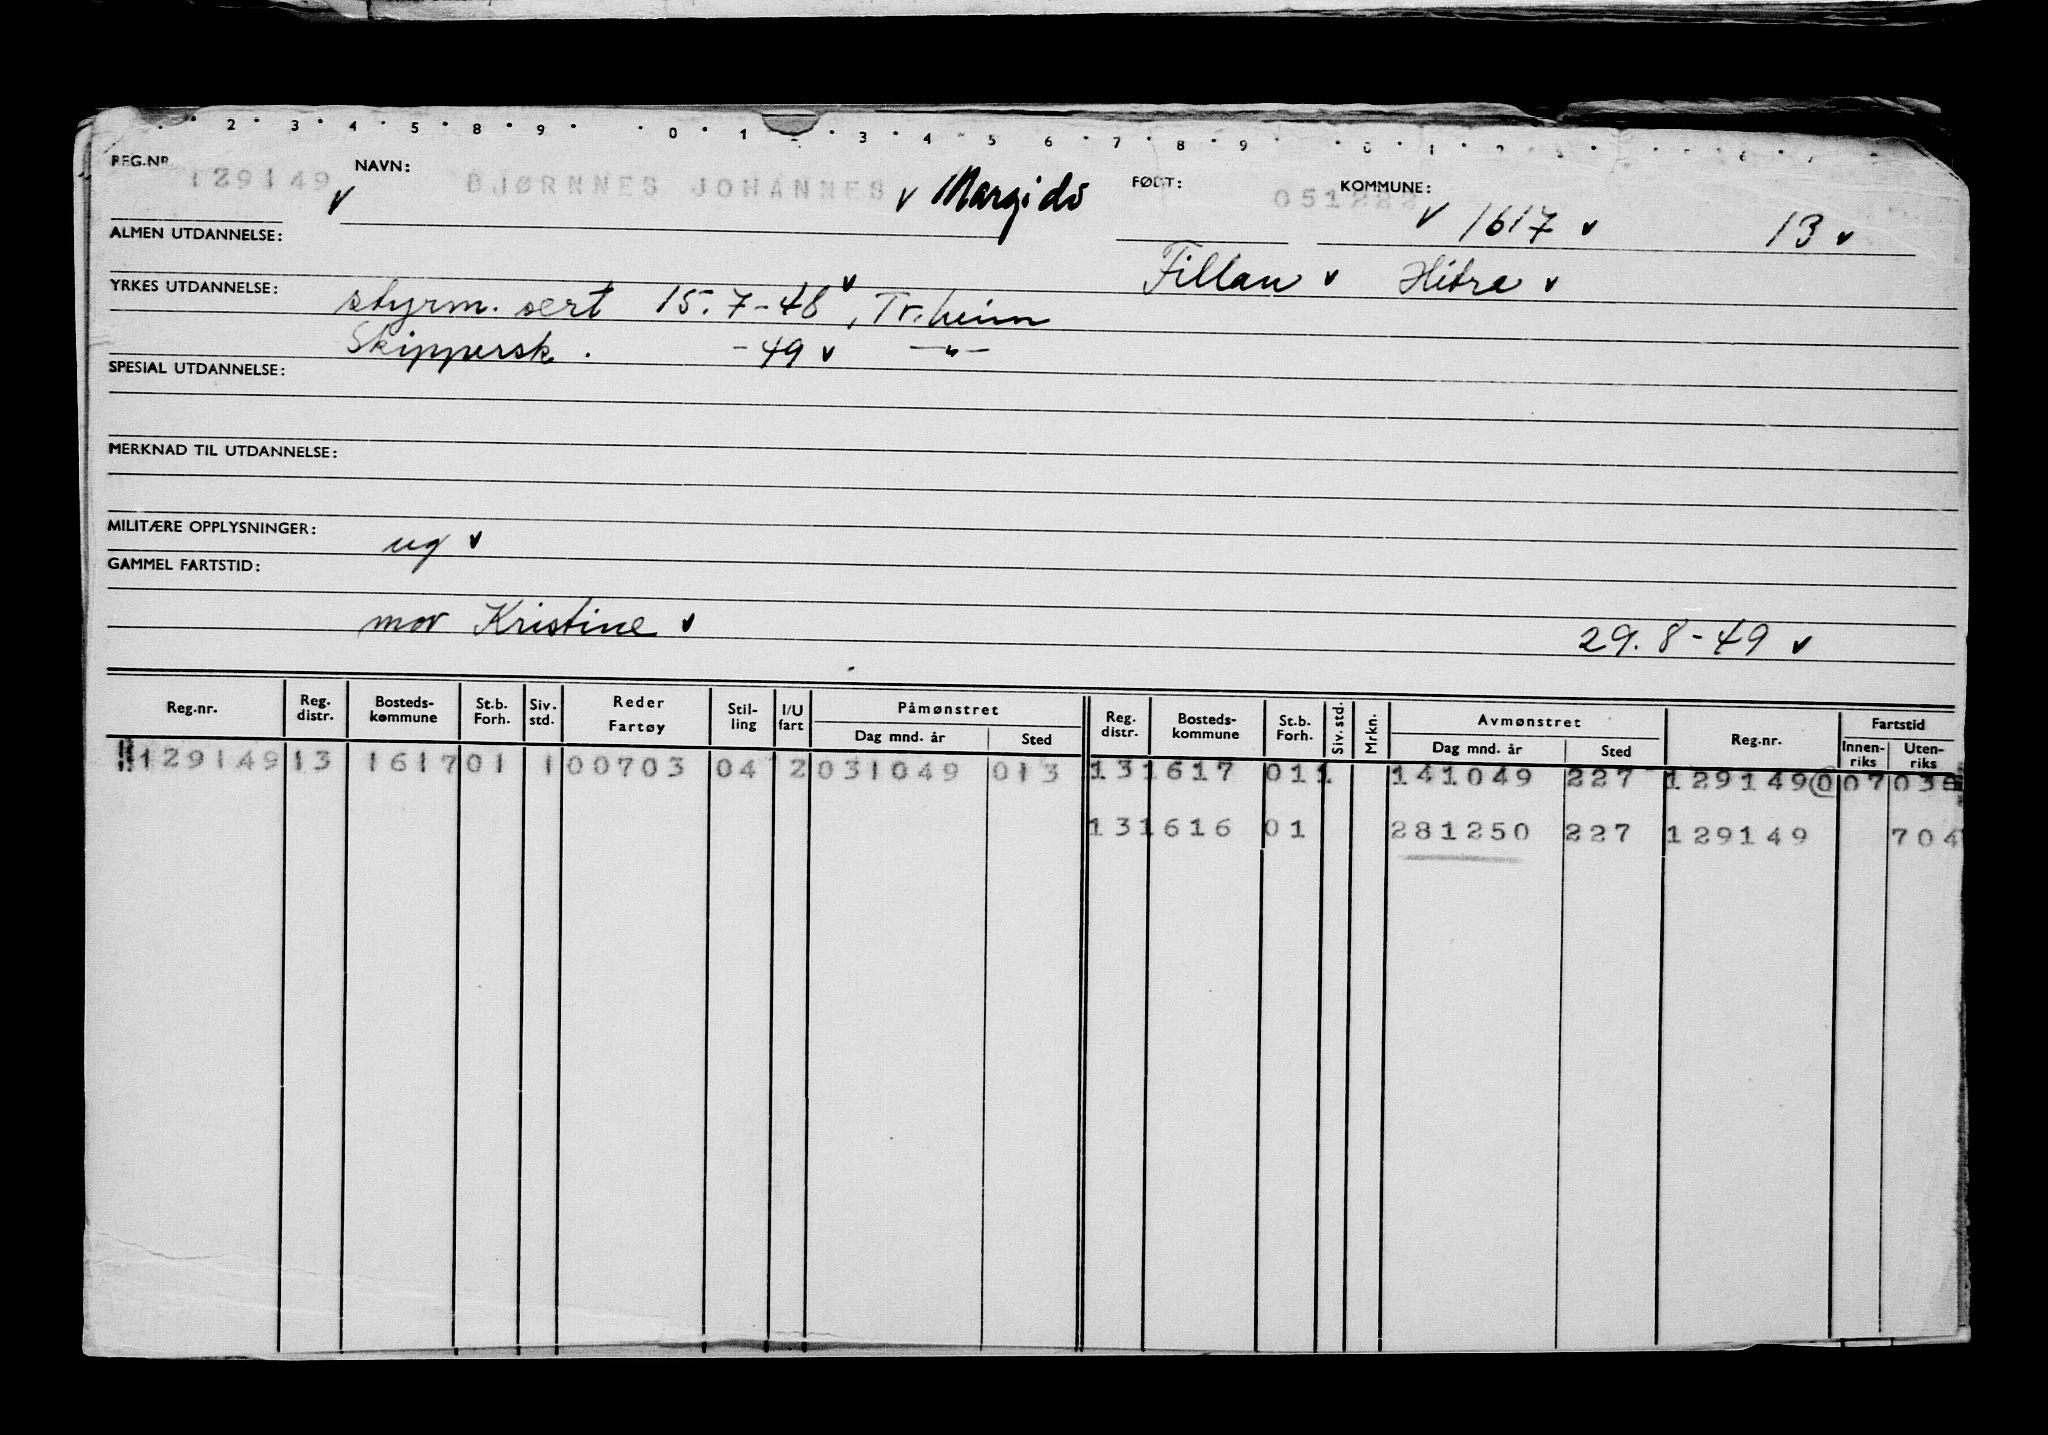 2 3 4 5 8 9 0 1 2 3 4 5 6 7 8 9 0 1 2 3 5 6 7
REG.NR. 129149 NAVN: BJØRNNES JOHANNES v Margido FØDT: 051222 KOMMUNE: v 1617 v 13 v
ALMEN UTDANNELSE: Fillan v Hitra v
YRKES UTDANNELSE: styrm. sert 15.7-48 v, Tr.heim
Skippersk. -49 v -"-
SPESIAL UTDANNELSE:
MERKNAD TIL UTDANNELSE:
MILITÆRE OPPLYSNINGER: ug v
GAMMEL FARTSTID:
mor Kristine v 29.8-49 v
Reg.nr. Reg. distr. Bosteds-kommune St.b. Forh. Siv. std. Reder Fartøy Stil-ling I/U fart Påmønstret Dag mnd. år Sted Reg. distr. Bosteds-kommune St.b. Forh. Siv. std. Mrkn. Avmønstret Dag mnd. år Sted Reg.nr. Fartstid Innen-riks Uten-riks
129149 13 1617 01 1 00703 04 2 031049 013 13 1617 01 1 141049 227 129149 0 07 03
13 1616 01 281250 227 129149 704